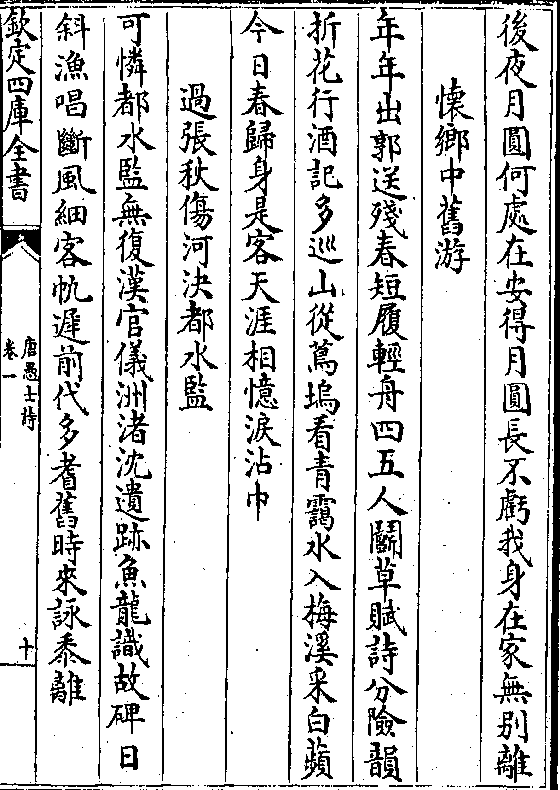 後夜月圓何處在安得月圓長不虧我身在家無別離
懷鄉中舊游
年年出郭送殘春短履輕舟四五人鬭草賦詩分險韻
折花行酒記多巡山從蔿塢看青靄水入梅溪采白蘋
今日春歸身是客天涯相憶淚沾巾
過張秋傷河決都水監
可憐都水監無復漢官儀洲渚沈遺跡魚龍識故碑日
斜漁唱斷風細客帆遲前代多耆舊時來詠黍離
欽定四庫全書
唐愚士詩
卷一
十